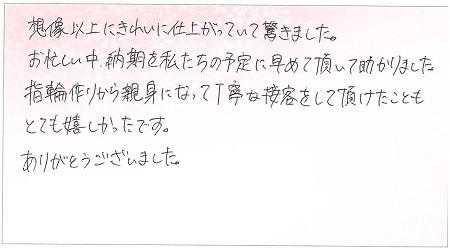 想像以上にきれいに仕上がっていて驚きました。
お忙しい中、納期を私たちの予定に早めて頂いて助かりました
指輪作りから親身になって丁寧な接客をして頂けたことも
とても嬉しかったです。
ありがとうございました。